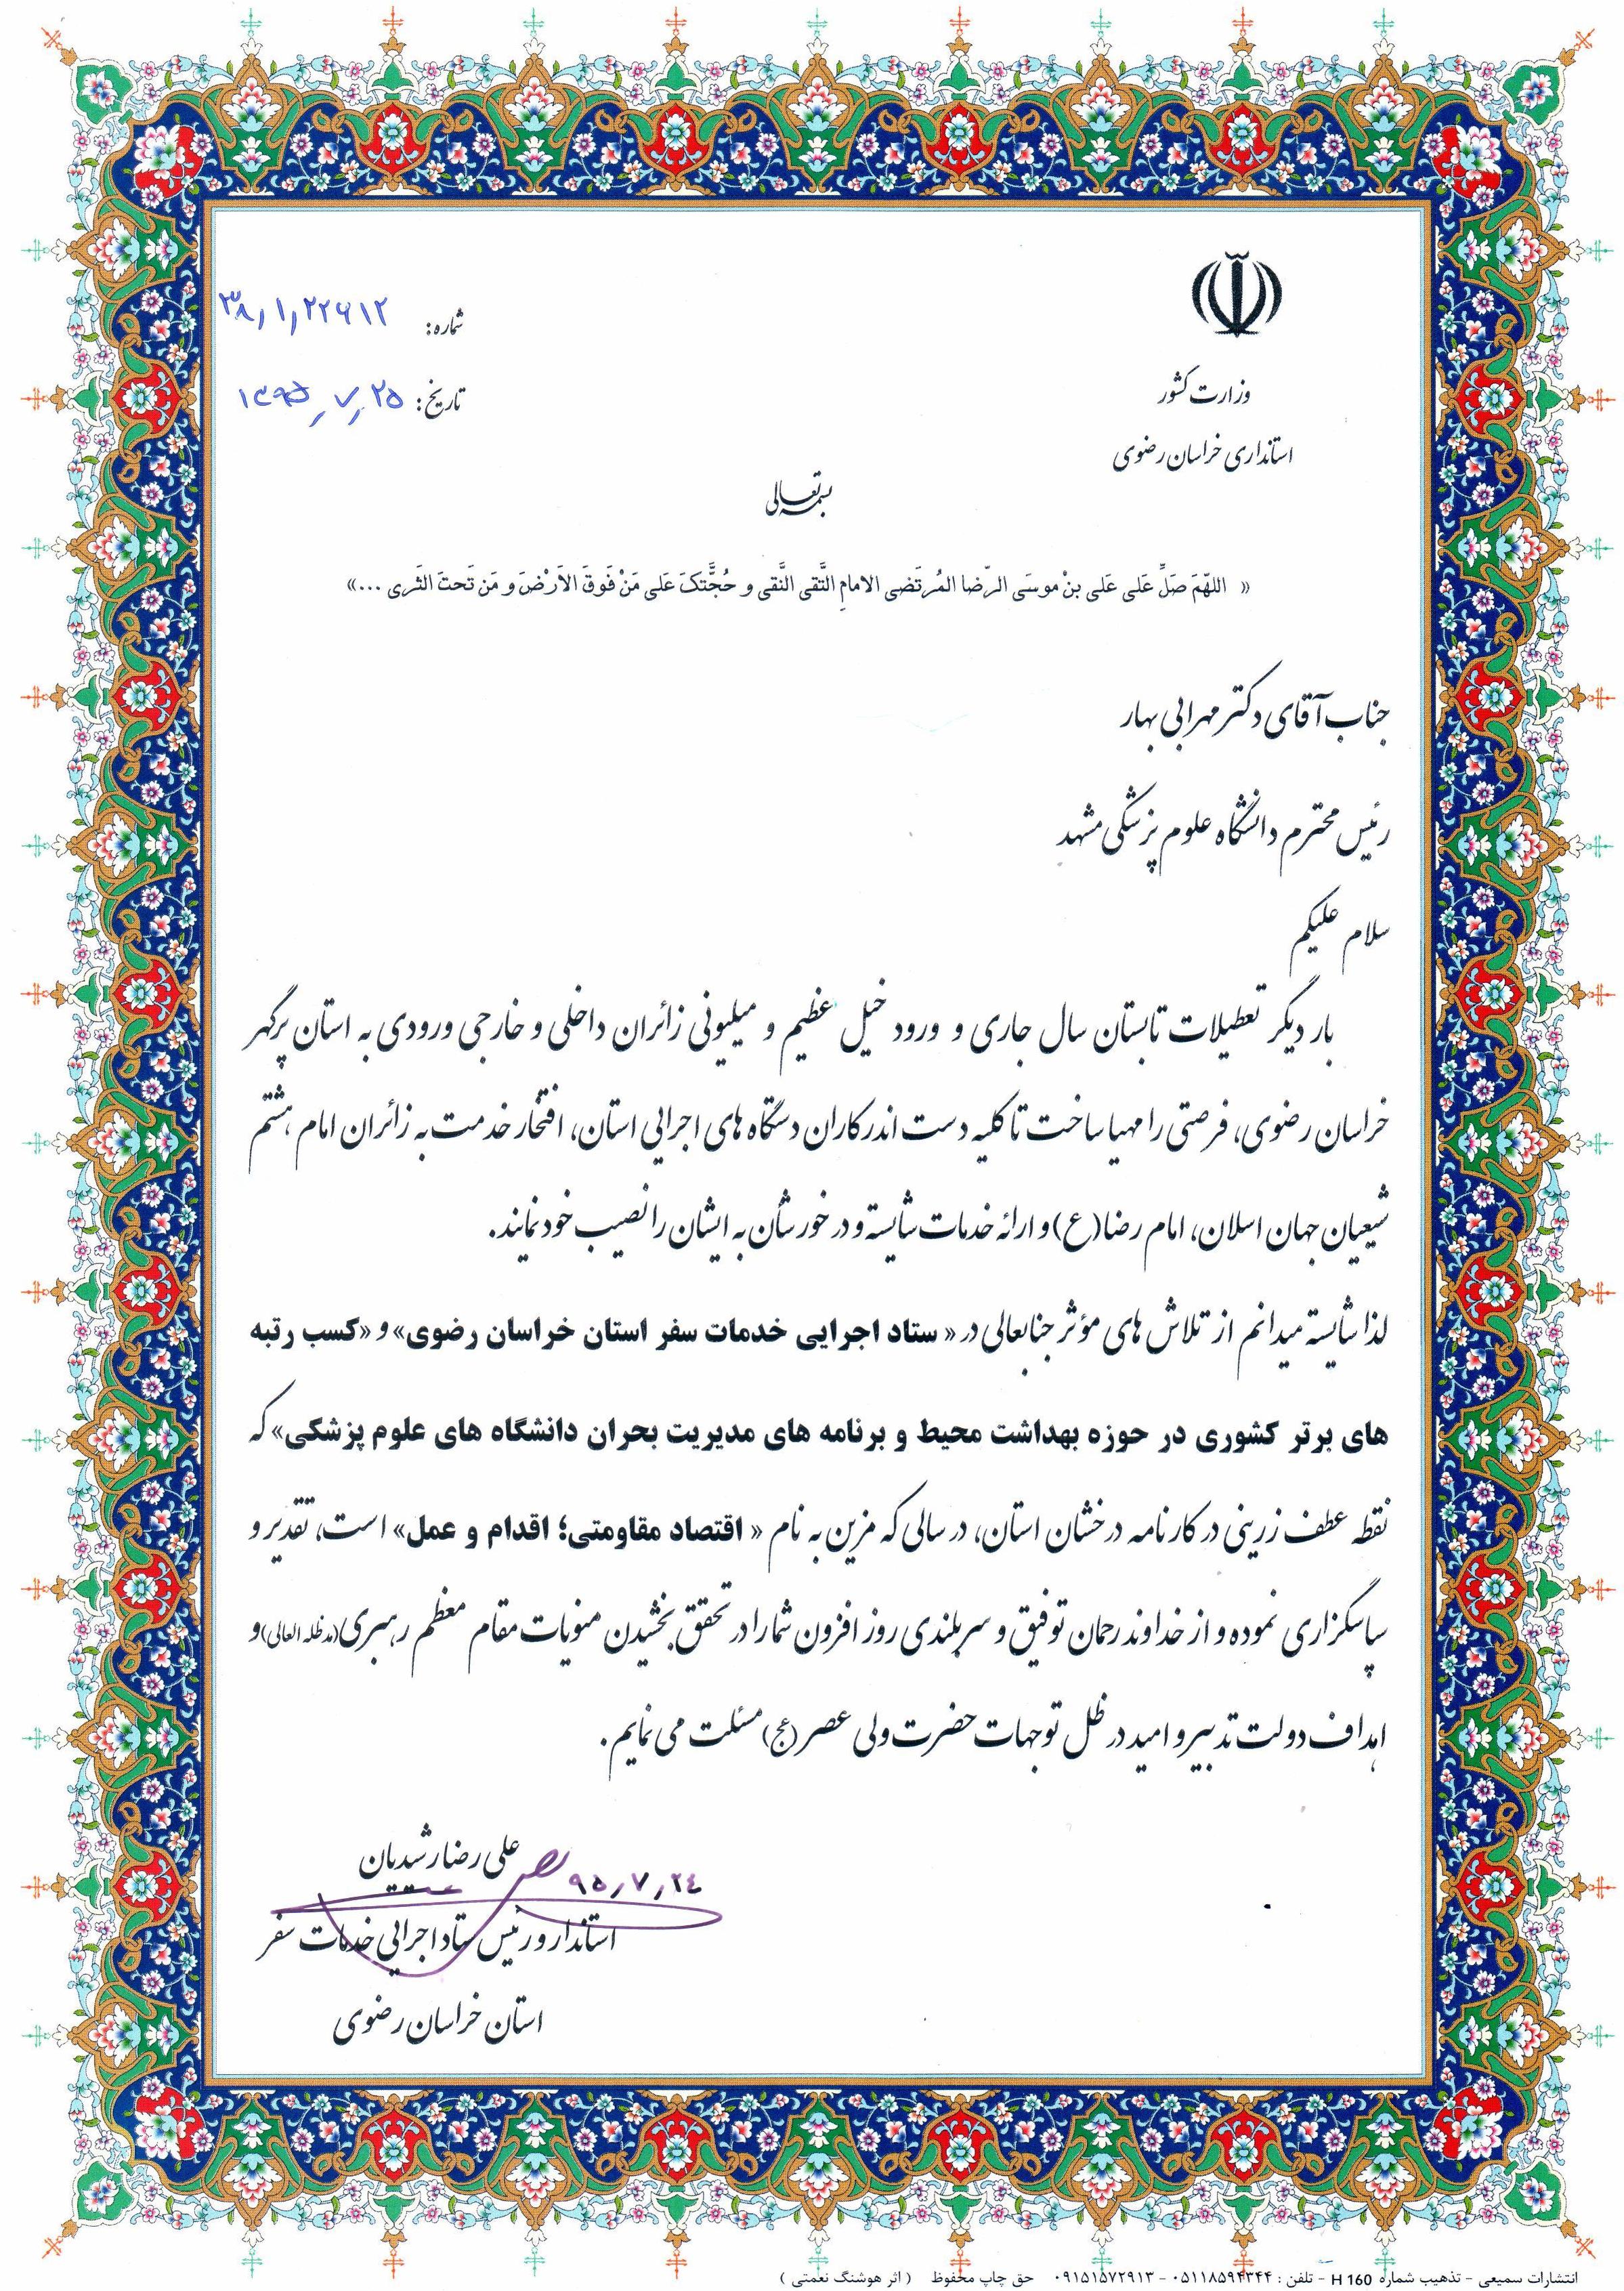 شماره: ۳۸/۱/۲۲۶۱۲
تاریخ: ۱۳۹۵/۷/۲۵
وزارت کشور
استانداری خراسان رضوی
بسمه تعالی
« اللهّمَ صَلِّ عَلی عَلی بنْ موسَی الرّضا المُرتَضی الامامِ التَّقی النَّقی و حُجَّتکَ عَلی مَنْ فَوقَ الاَرْضَ و مَن تَحتَ الثَری ...»
جناب آقای دکتر مهرابی بهار
رئیس محترم دانشگاه علوم پزشکی مشهد
سلام علیکم
بار دیگر تعطیلات تابستان سال جاری و ورود خیل عظیم و میلیونی زائران داخلی و خارجی ورودی به استان پرگهر
خراسان رضوی، فرصتی را مهیا ساخت تا کلیه دست اندرکاران دستگاه های اجرایی استان، افتخار خدمت به زائران امام هشتم
شیعیان جهان اسلان، امام رضا(ع) و ارائه خدمات شایسته و در خور شأن به ایشان را نصیب خود نمایند.
لذا شایسته میدانم از تلاش های مؤثر جنابعالی در « ستاد اجرایی خدمات سفر استان خراسان رضوی» و «کسب رتبه
های برتر کشوری در حوزه بهداشت محیط و برنامه های مدیریت بحران دانشگاه های علوم پزشکی» که
نقطه عطف زرینی در کارنامه درخشان استان، در سالی که مزین به نام « اقتصاد مقاومتی؛ اقدام و عمل» است، تقدیر و
سپاسگزاری نموده و از خداوند رحمان توفیق و سربلندی روز افزون شما را در تحقق بخشیدن منویات مقام معظم رهبری(مدظله العالی) و
اهداف دولت تدبیر و امید در ظل توجهات حضرت ولی عصر (عج) مسئلت می نمایم.
علی رضا رشیدیان
۹۵/۷/۲۴
استاندار و رئیس ستاد اجرایی خدمات سفر
استان خراسان رضوی
انتشارات سمیعی - تذهیب شماره H 160 - تلفن : ۰۵۱۱۸۵۹۴۳۴۴ - ۰۹۱۵۱۵۷۲۹۱۳ حق چاپ محفوظ ( اثر هوشنگ نعمتی )